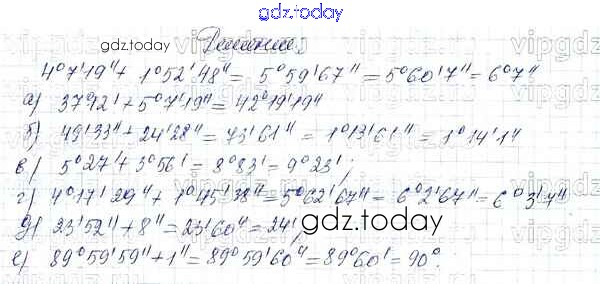 gdz.today
Решение:
gdz.today
4°7'19" + 1°52'48" = 5°59'67" = 5°60'7" = 6°7"
а) 37°12' + 5°7'19" = 42°19'19"
б) 49'33" + 24'28" = 73'61" = 1°13'61" = 1°14'1"
в) 5°27' + 3°56' = 8°83' = 9°23';
г) 4°17'29" + 1°45'38" = 5°62'67" = 6°2'67" = 6°3'7"
д) 23'52" + 8" = 23'60" = 24';
gdz.today
е) 89°59'59" + 1" = 89°59'60" = 89°60' = 90°.